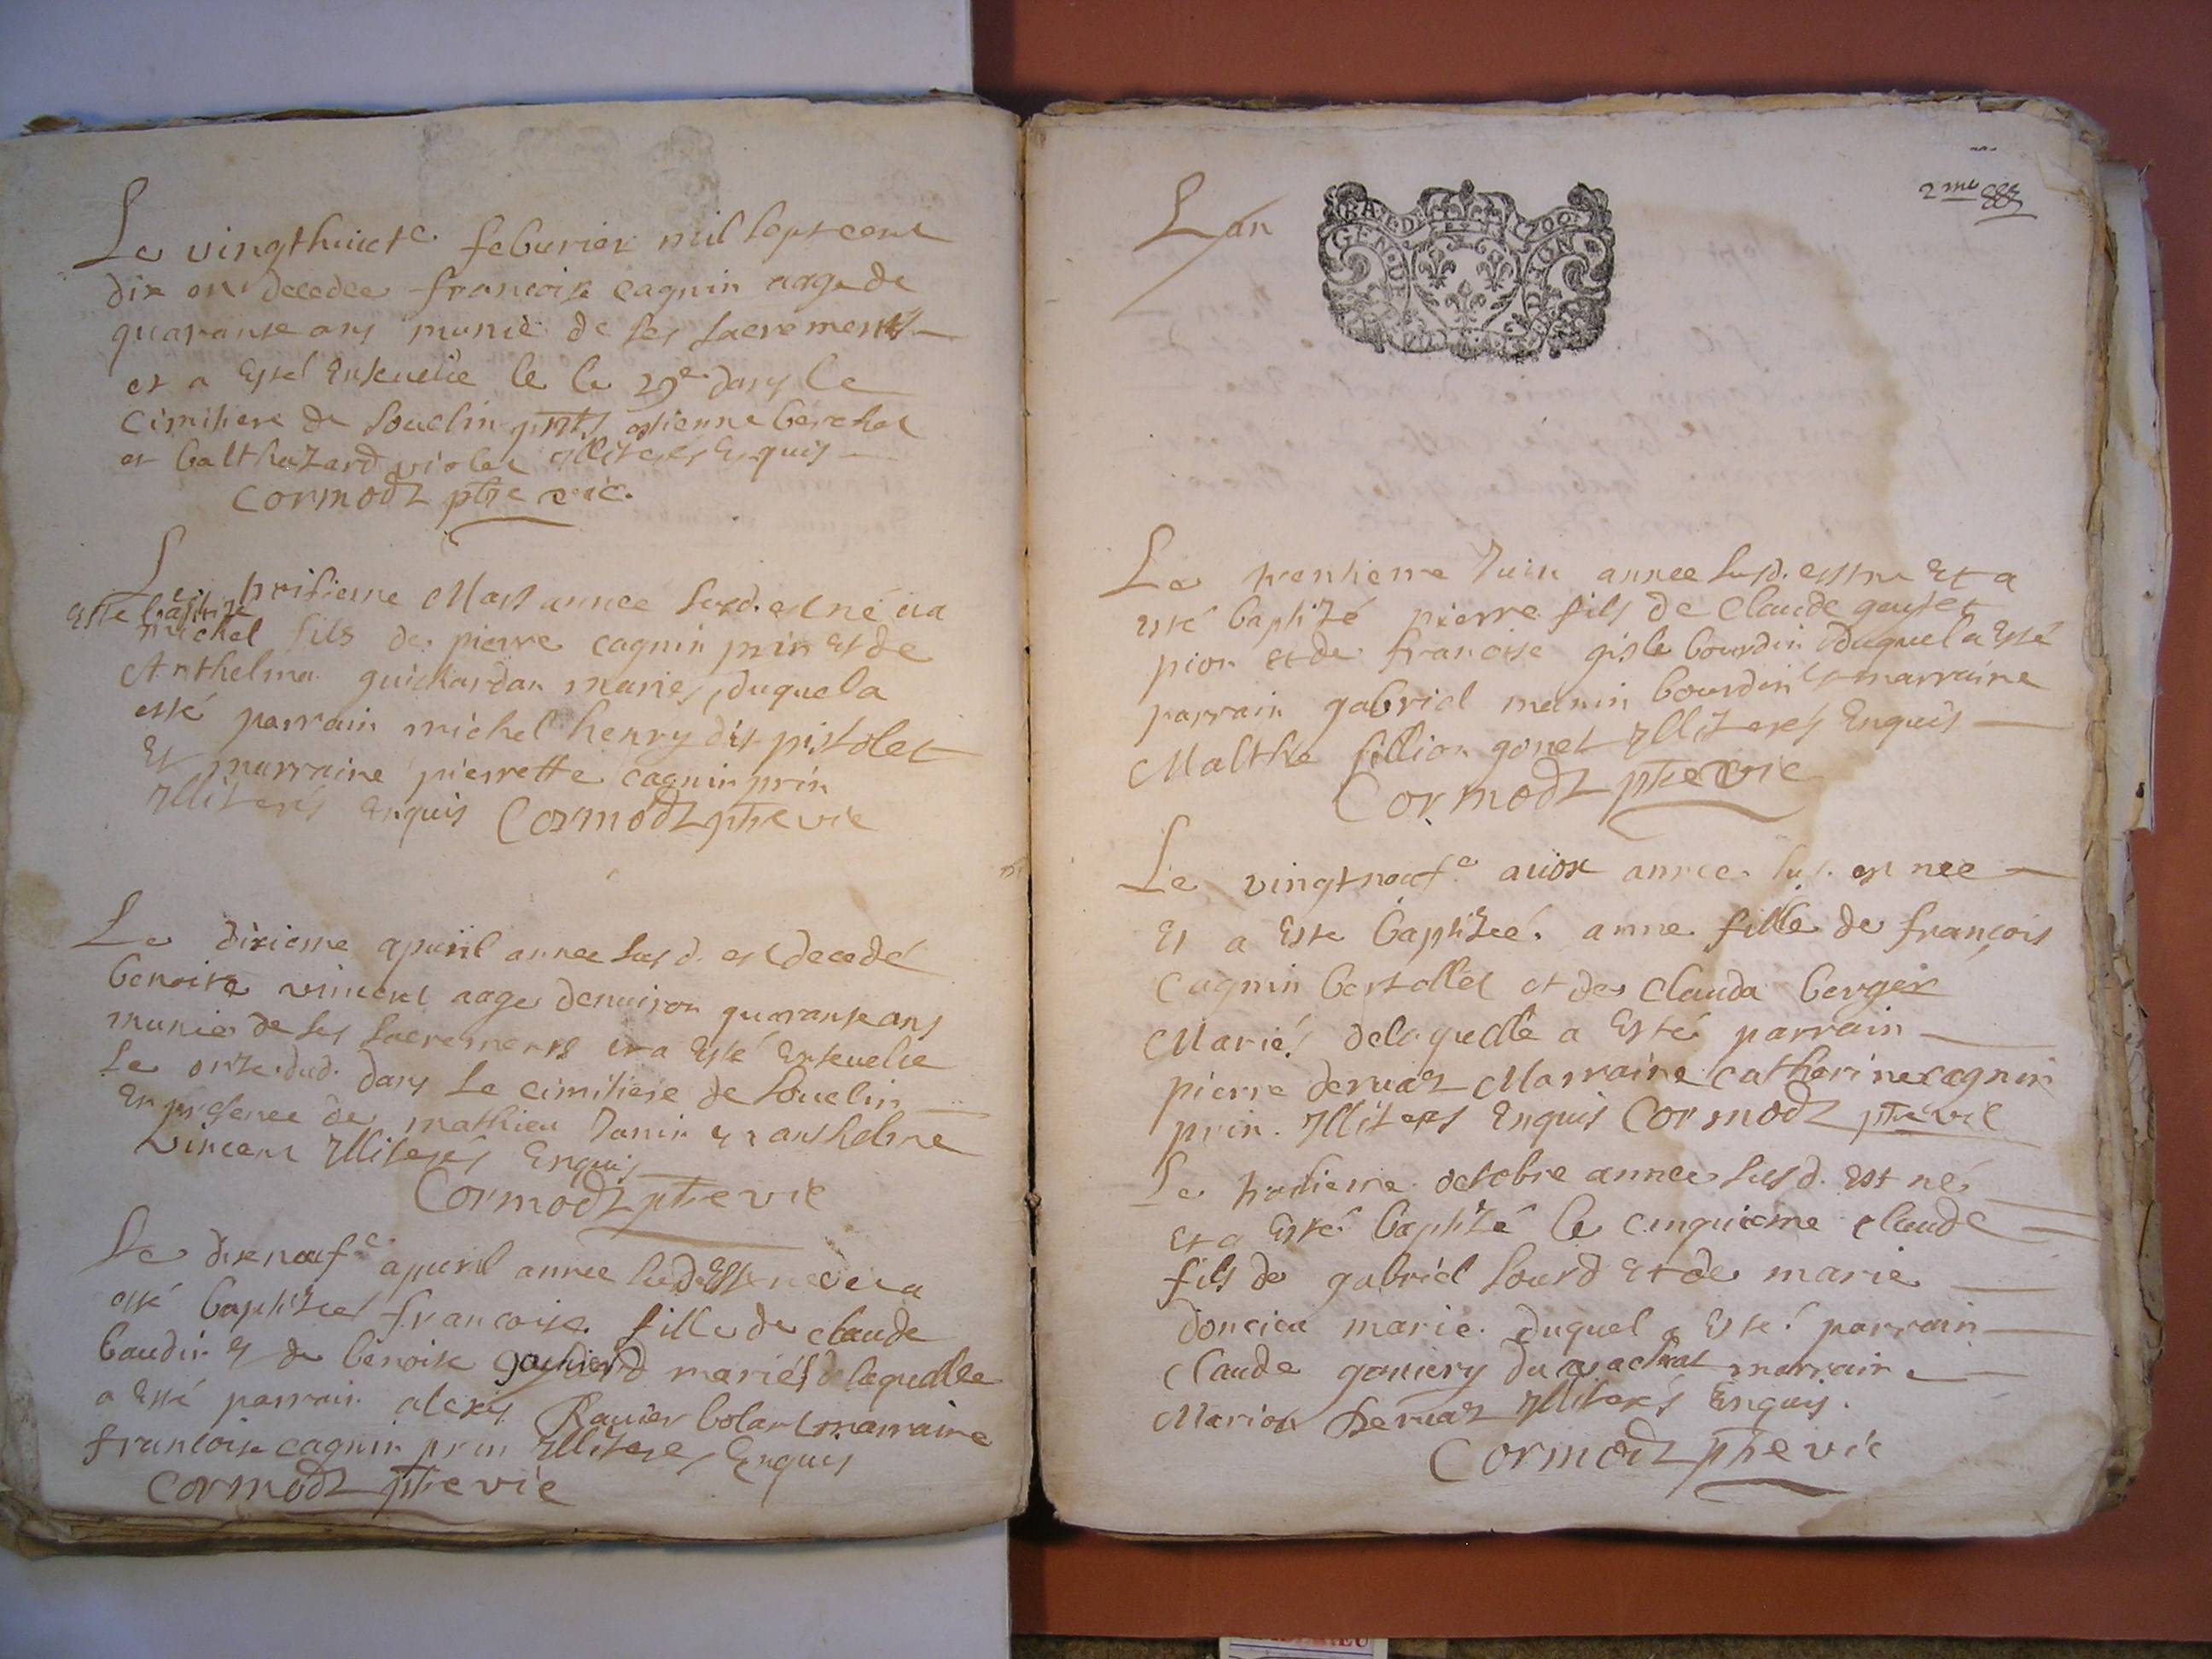 Le vingthuicte feburier mil sept cent
dix est decedee francoise cagnin aagede
quarante ans munie de ses sacrements
et a esté Ensevelie le le 29e dans le
Cimitiere de Souclin pnts estienne berchet
et balthazard violet illiterés Enquis
Cormodz ptre vic.
Le troisieme Mars annee susd. est né et a
esté baptizé
michel fils de pierre cagnin prin et de
Anthelma guichardan mariés, duquel a
esté parrain michel henry dit pistolet
Et marraine pierrette cagnin prin
Illiterés Enquis Cormodz ptre vic
Le dixieme apuril annee susd. est decedé
benoite vincent aagee denviron quarante ans
munie de ses sacrements et a esté Ensevelie
le onze dud. dans le cimitiere de Souclin
En presence de mathieu Janin et anthelme
vincent Illiterés Enquis
Cormodz ptre vic
Le dixneufe apuril annee susd Est nee et a
esté baptizee francoise fille de claude
baudin et de benoite mariés de laquelle
a esté parrain alexis Ravier bolart marraine
francoise cagnin prin Illiteres Enquis
Cormodz ptre vic
2me
Lan
GEN. D
1709
Le trentieme Juin annee susd. est né Et a
esté baptizé pierre fils de Claude goujet
pion et de francoise gisle bourdin duquel a esté
parrain gabriel manin bourdin et marraine
Malthe fillion gonet Illiterés Enquis
Cormodz ptre vic
Le vingtneufe aiost annee sus. est nee
Et a Esté baptizeé anne fille de françois
Cagnin bertollet et de Clauda berger
Mariés de laquelle a Esté parrain
pierre deruaz Marraine Catherine cagnin
prin. Illiterés Enquis Cormodz ptre vic
Le troisieme octobre annee susd. Est né
Et a Esté baptizé le cinquieme claude
fils de gabriel Sourd et de marie
doncieu marié. duquel a Esté parrain
Claude goniery du marraine
Marion deruaz Illiterés Enquis.
Cormodz ptre vic